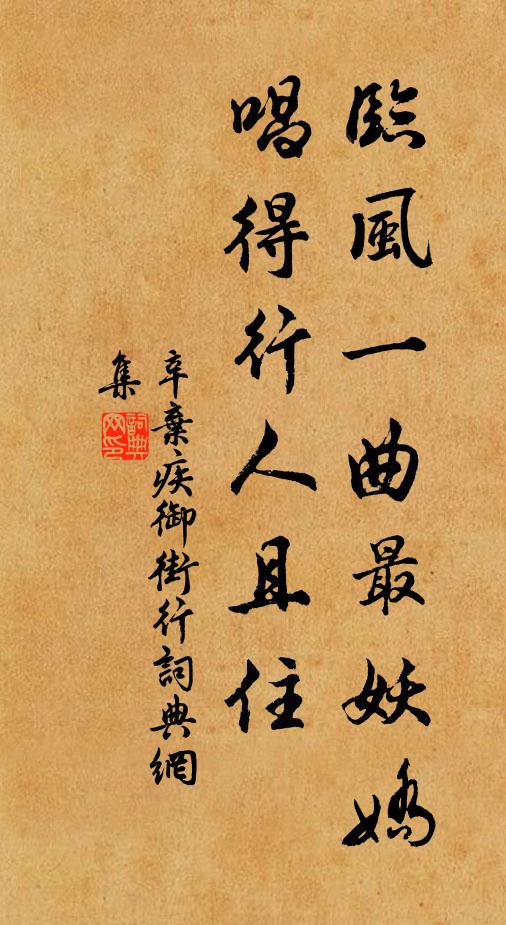 臨風一曲最妖嬌
唱得行人且住
辛棄疾御街行詞典網
集
詞典網印